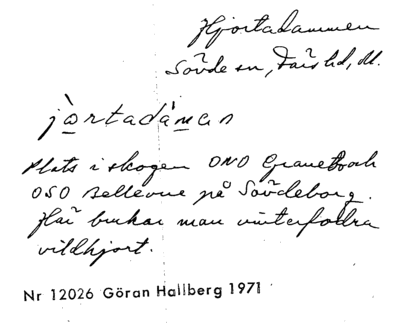 Hjortadammen
Sövde sn, Färs hd, M.
jòrtadàman
Plats i skogen ONO Granebrack
OSO Bellevue på Sövdeborg.
Här brukar man vinterfodra
vildhjort.
Nr 12026 Göran Hallberg 1971